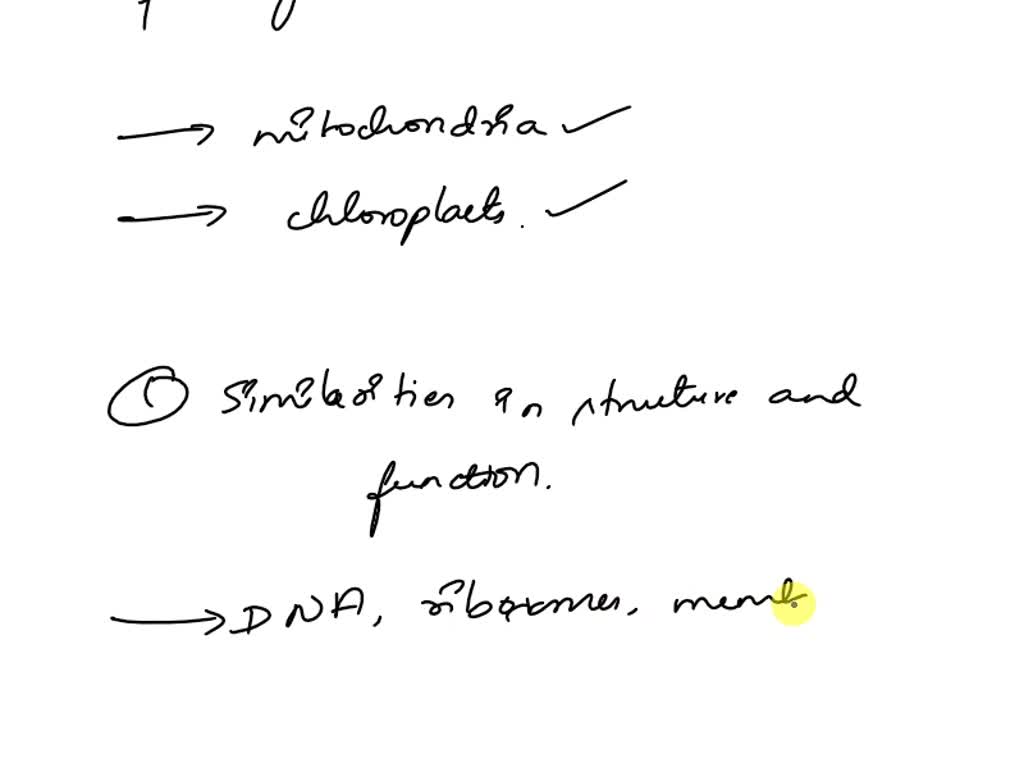 → mitochondria ✓
→ chloroplasts. ✓
① Similarities in structure and
function.
→ DNA, ribosomes, memb